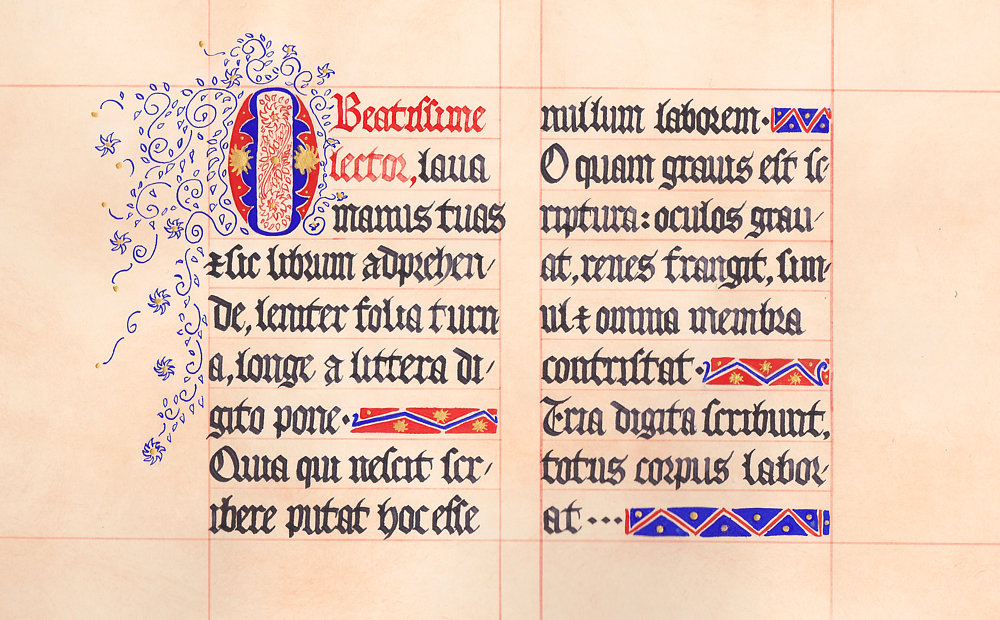 O Beatiſſime
lector, laua
manus tuas
⁊ ſic librum adprehen-
de, leniter folia turn
a, longe a littera di-
gito pone·
Quia qui neſcit ſcr-
ibere putat hoc eſſe
nullum laborem·
O quam grauis eſt ſc-
riptura: oculos grau-
at, renes frangit, ſim-
ul ⁊ omnia membra
contriſtat·
Tria digita ſcribunt,
totus corpus labor-
at···